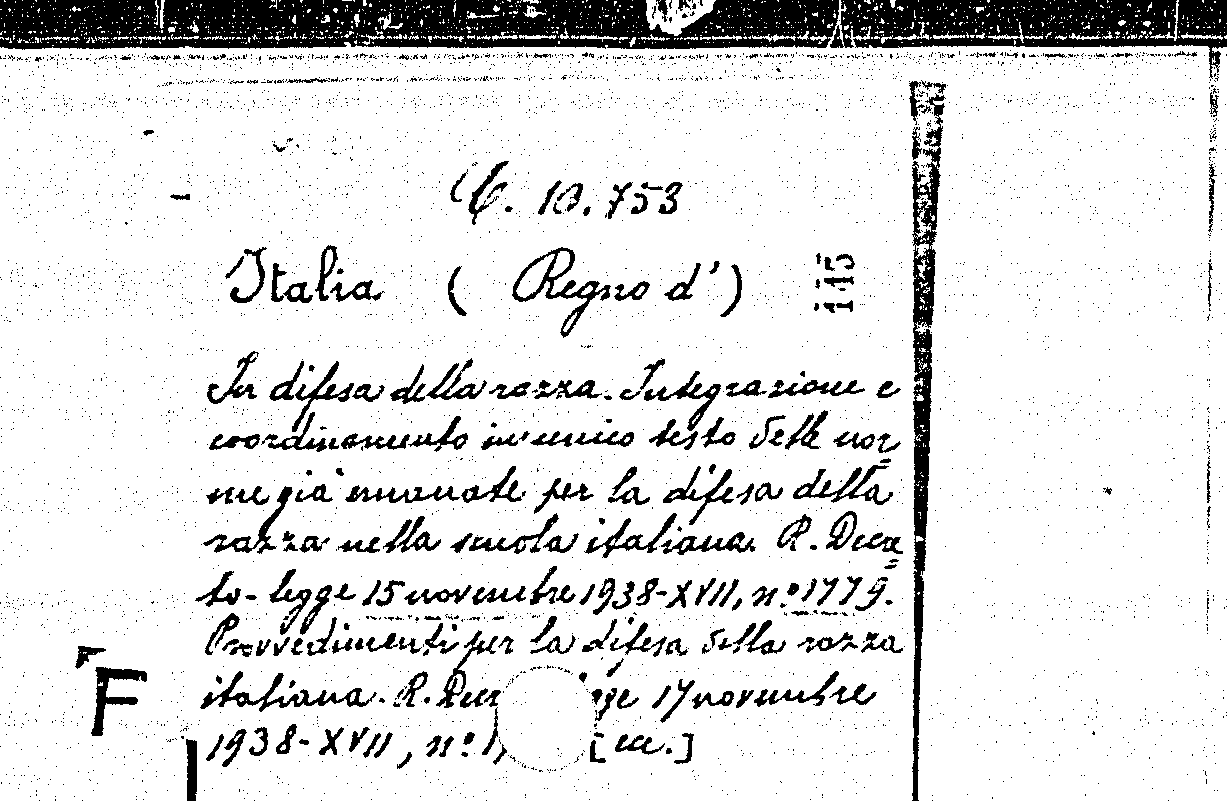 C. 10.753
Italia ( Regno d')
145
In difesa della razza. Integrazione e
coordinamento in unico testo delle nor=
me già emanate per la difesa della
razza nella scuola italiana. R. Decre=
to-legge 15 novembre 1938-XVII, nº 1779.
Provvedimenti per la difesa della razza
italiana. R. Decr gge 17 novembre
1938-XVII, nº 1, [ecc.]
F